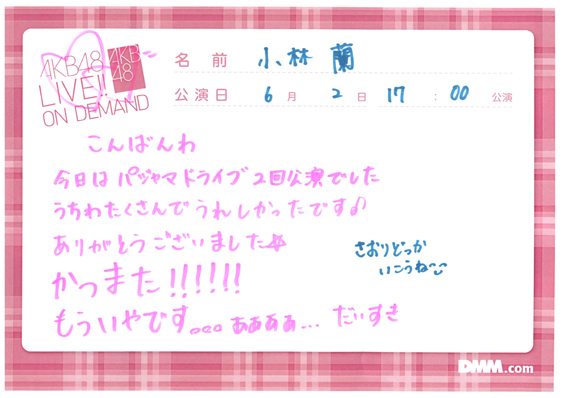 AKB48
LIVE!!
ON DEMAND
AKB
48
名前 小林 蘭
公演日 6月 2日 17:00 公演
こんばんわ
今日はパジャマドライブ2回公演でした
うちわたくさんでうれしかったです♪
ありがとうございました☆
さおりどっか
いこうね〜
かつまた!!!!!!
もういやです。。。ぁぁぁぁ... だいすき
DMM.com